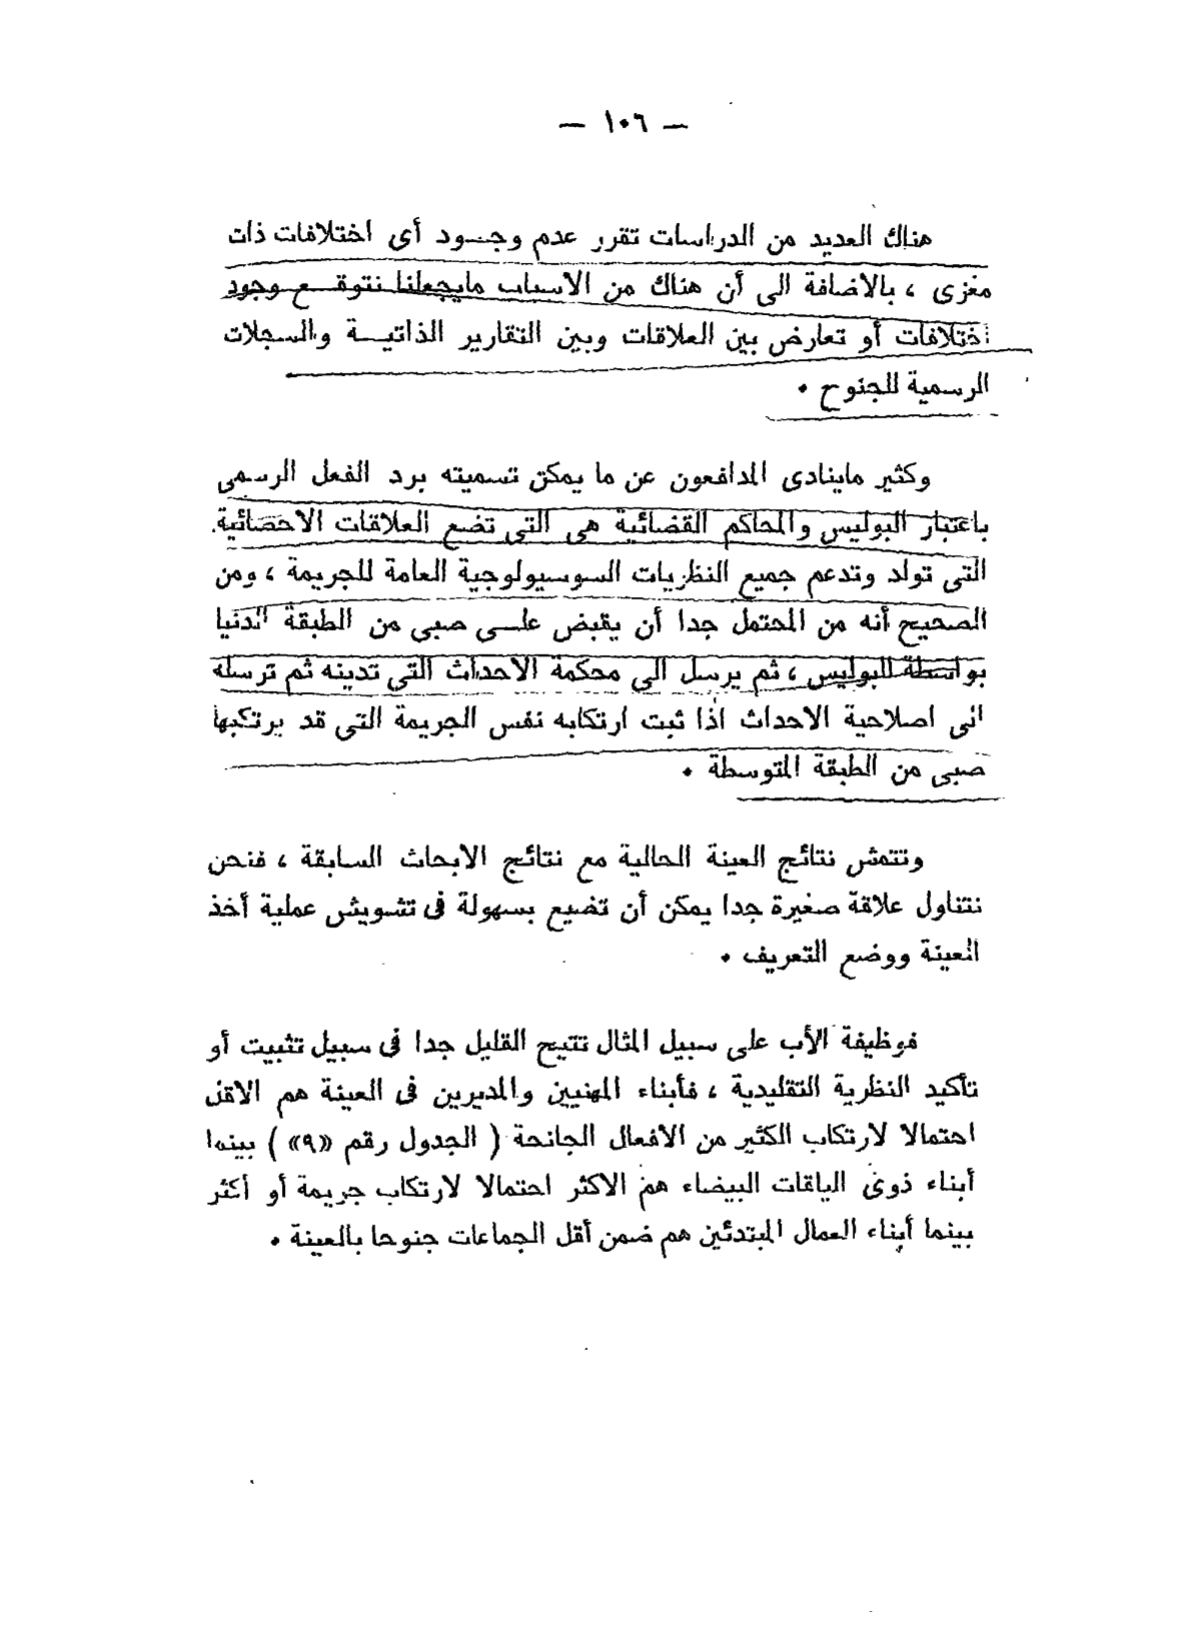 — ١٠٦ —
هناك العديد من الدراسات تقرر عدم وجود أى اختلافات ذات
مغزى ، بالاضافة الى أن هناك من الاسباب مايجعلنا نتوقع وجود
اختلافات أو تعارض بين العلاقات وبين التقارير الذاتية والسجلات
الرسمية للجنوح •
وكثير ماينادى المدافعون عن ما يمكن تسميته برد الفعل الرسمى
باعتبار البوليس والمحاكم القضائية هى التى تضع العلاقات الاحصائية
التى تولد وتدعم جميع النظريات السوسيولوجية العامة للجريمة ، ومن
الصحيح أنه من المحتمل جدا أن يقبض على صبى من الطبقة الدنيا
بواسطة البوليس ، ثم يرسل الى محكمة الاحداث التى تدينه ثم ترسله
الى اصلاحية الاحداث اذا ثبت ارتكابه نفس الجريمة التى قد يرتكبها
صبى من الطبقة المتوسطة •
وتتمش نتائج العينة الحالية مع نتائج الابحاث السابقة ، فنحن
نتناول علاقة صغيرة جدا يمكن أن تضيع بسهولة فى تشويش عملية أخذ
العينة ووضع التعريف •
فوظيفة الأب على سبيل المثال تتيح القليل جدا فى سبيل تثبيت أو
تأكيد النظرية التقليدية ، فأبناء المهنيين والمديرين فى العينة هم الاقل
احتمالا لارتكاب الكثير من الافعال الجانحة ( الجدول رقم «٩» ) بينما
أبناء ذوى الياقات البيضاء هم الاكثر احتمالا لارتكاب جريمة أو أكثر
بينما أبناء العمال المبتدئين هم ضمن أقل الجماعات جنوحا بالعينة •